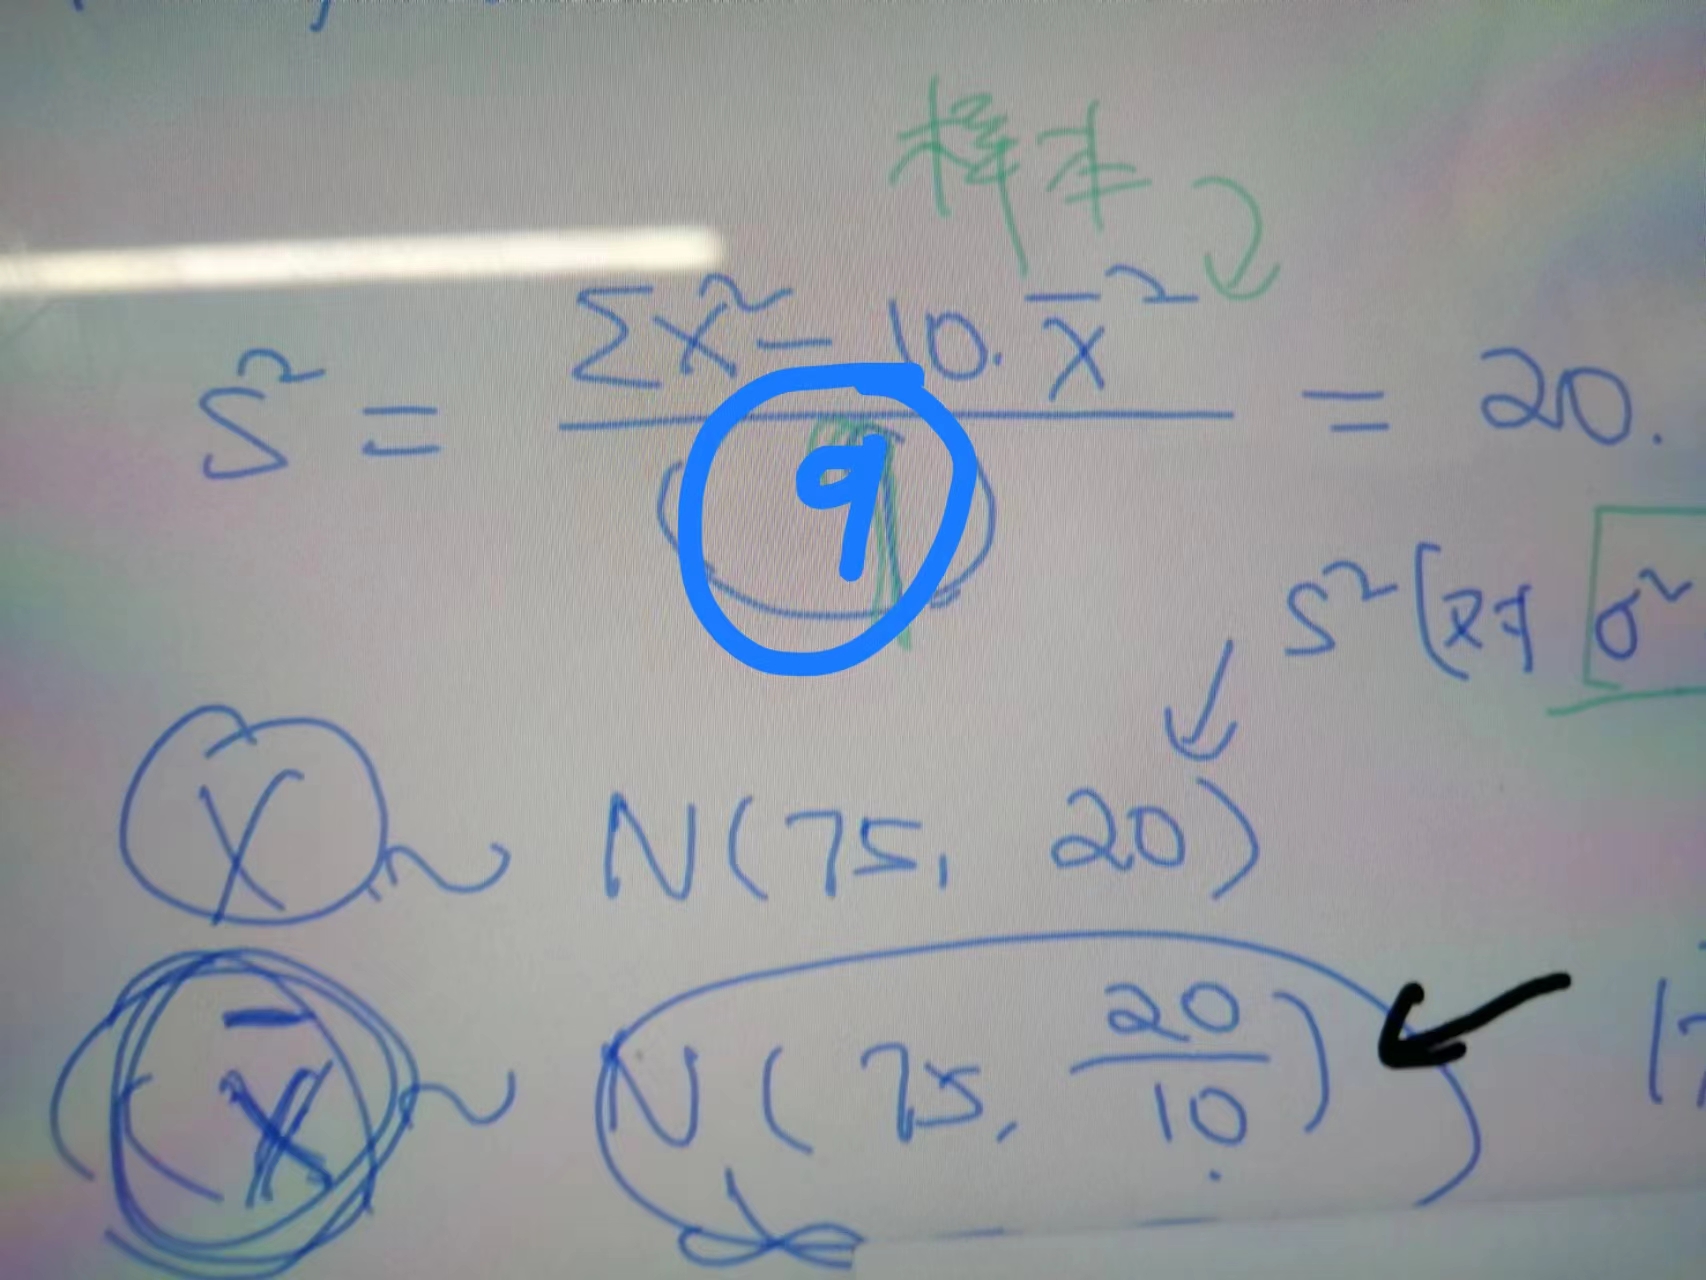 样本
S² = (Σx² - 10·x̄²) / 9 = 20.
S² (对 σ²
X ~ N(75, 20)
X̄ ~ N(75, 20/10)